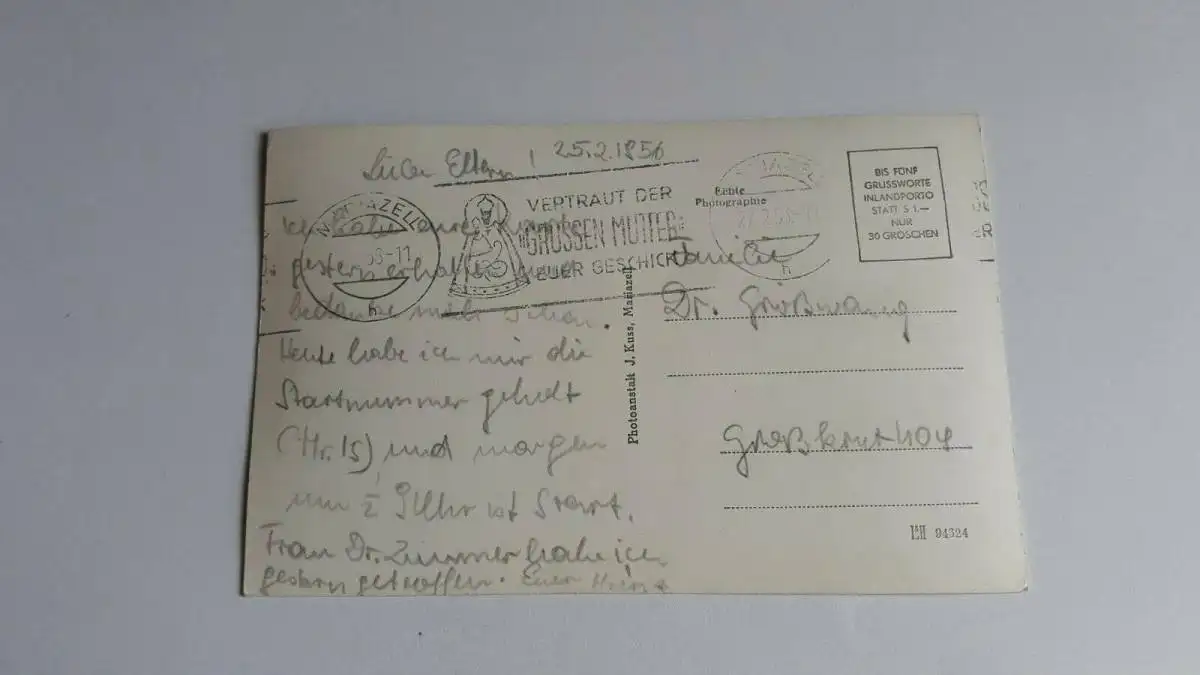 Liebe Eltern, 25.2.1956
Ich habe eure Karte
gestern erhalten und
bedanke mich schön.
Heute habe ich mir die
Startnummer geholt
(Nr. 15), und morgen
um ½ 9 Uhr ist Start.
Frau Dr. Zimmer habe ich
gestern getroffen. Euer
MARIAZELL
56-11
VERTRAUT DER
GROSSEN MUTTER
EUER GESCHICK
Photoanstalt J. Kuss, Mariazell
Echte
Photographie
BIS FÜNF
GRUSSWORTE
INLANDPORTO
STATT S 1,—
NUR
30 GROSCHEN
Familie
Dr. Größwang
Großkrut
94324